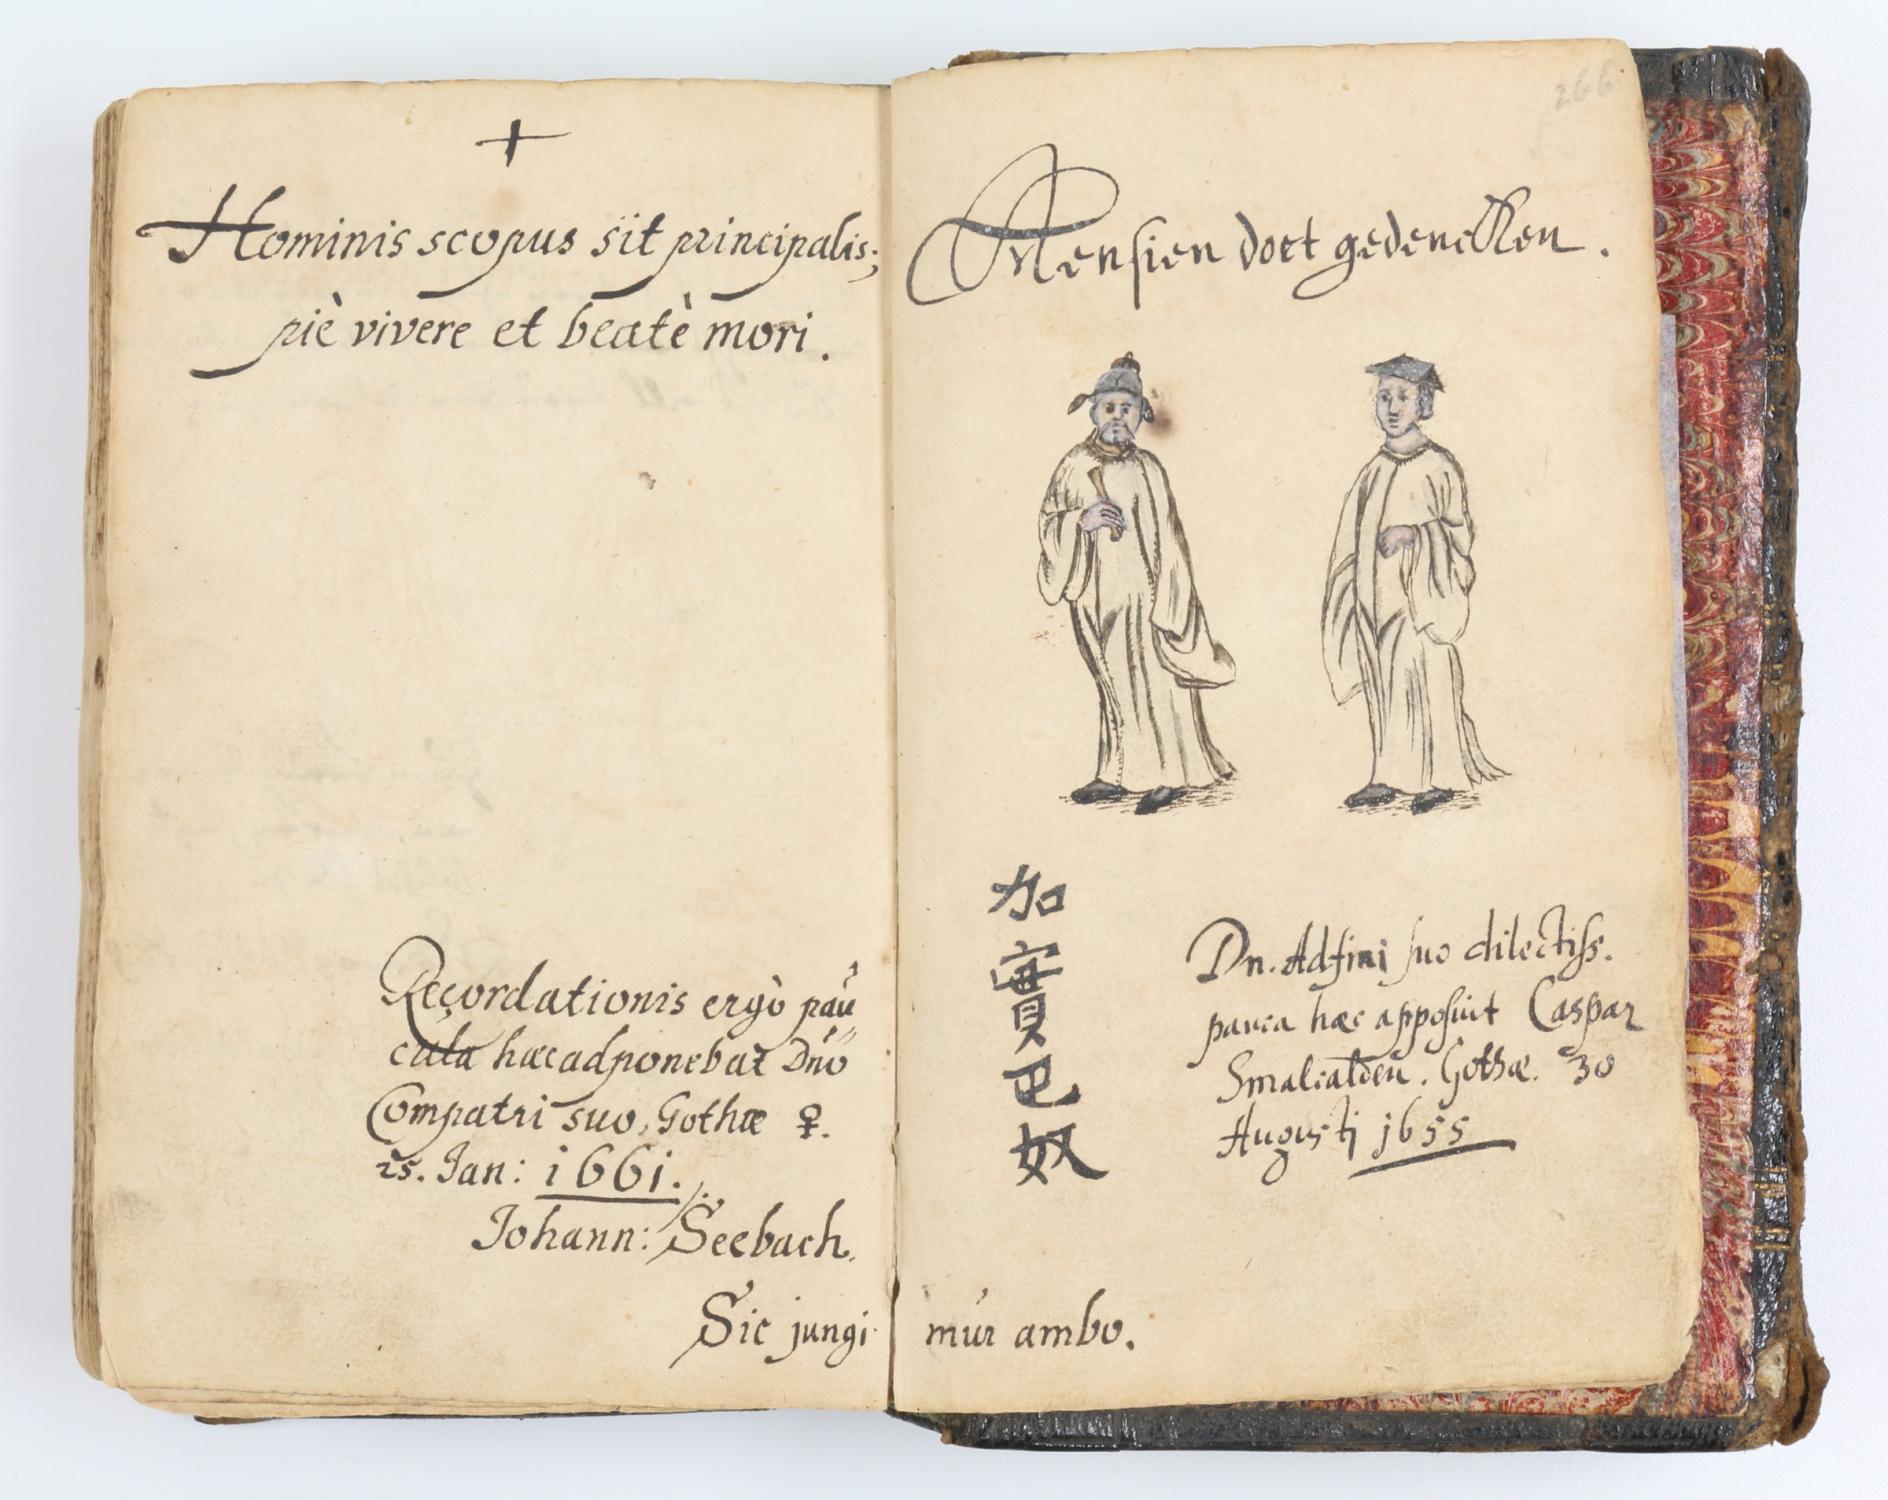 +
Hominis scopus sit principalis;
piè vivere et beatè mori.
Recordationis ergò pau
cula hæc adponebat Dnō
Compatri suo, Gothæ ♀.
25. Jan: 1661.
Johann: Seebach.
Sic jungi
266
Mensien doet gedencken.
加
實
巴
奴
Dn. Adfini suo dilectiss.
pauca hæc apposuit Caspar
Smalcalden. Gothæ. 30
Augusti 1655
mur ambo.